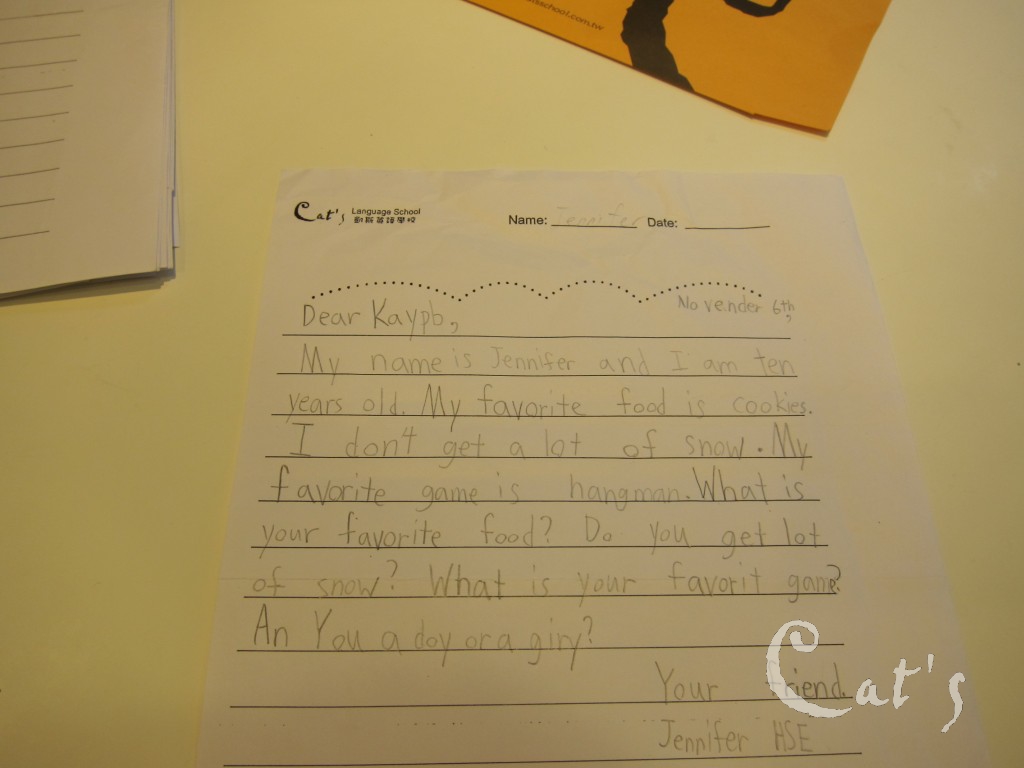 school.com.tw
Cat's Language School
凱斯英語學校
Name: Jennifer Date:
Novender 6th,
Dear Kaypb,
My name is Jennifer and I am ten
years old. My favorite food is cookies.
I don't get a lot of snow. My
favorite game is hangman. What is
your favorite food? Do you get lot
of snow? What is your favorit game?
An You a doy or a giry?
Your friend.
Jennifer HSE
Cat's